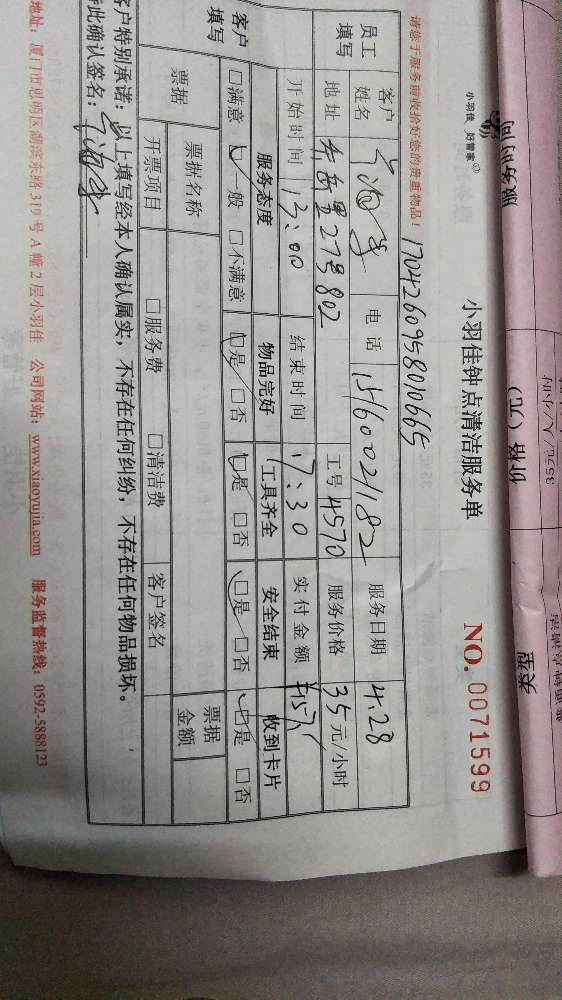 小羽佳 好管家
小羽佳钟点清洁服务单
NO. 0071599
请您于服务前收拾好您的贵重物品!
17042609958010665
员工填写
客户姓名
电话 15160021182
服务日期 4.28
地址 27号802
工号 4570
服务价格 35元/小时
开始时间 13:00
结束时间 17:30
实付金额
客户填写
服务态度 物品完好 工具齐全 安全结束 收到卡片
□满意 □一般 □不满意 □是 □否 □是 □否 □是 □否 □是 □否
票据
票据名称
票据金额
开票项目 □服务费 □清洁费 客户签名
客户特别承诺:以上填写经本人确认属实,不存在任何纠纷,不存在任何物品损坏。
特此确认签名:
地址:厦门市思明区湖滨东路319号A幢2层小羽佳 公司网站:www.xiaoyujia.com 服务监督热线:0592-5888123
服务时间
价格(元)
类型